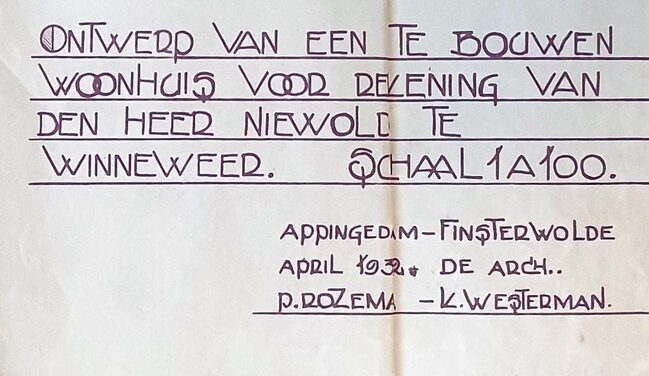 ONTWERP VAN EEN TE BOUWEN
WOONHUIS VOOR REKENING VAN
DEN HEER NIEWOLD TE
WINNEWEER. SCHAAL 1 A 100.
APPINGEDAM – FINSTERWOLDE
APRIL 1932. DE ARCH..
P. ROZEMA – K. WESTERMAN.